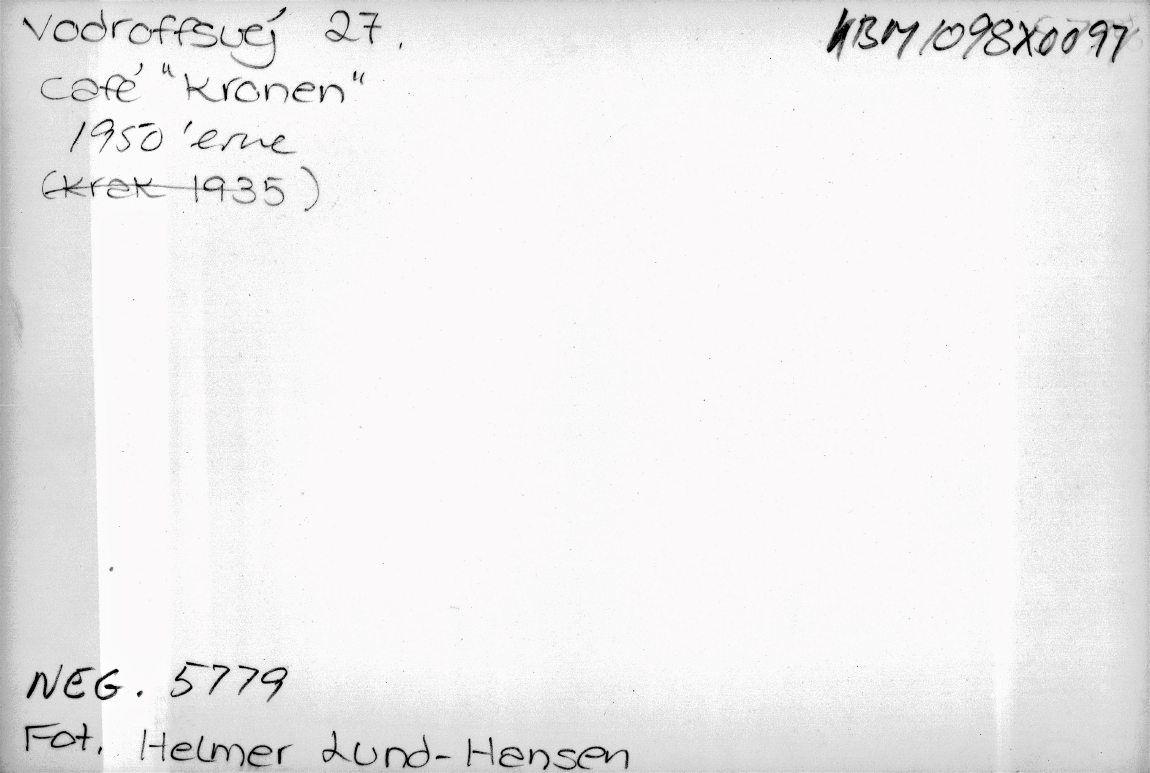 Vodroffsvej 27.
KBM 1098X0097
Café "Kronen"
1950'erne
(Krak 1935)
NEG. 5779
Fot. Helmer Lund-Hansen